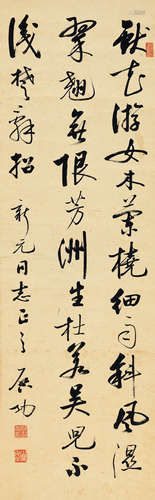 献花游女木兰桡细雨斜风湿
翠翘无限芳洲生杜若吴儿不
识楚辞招 新元同志正之 启功